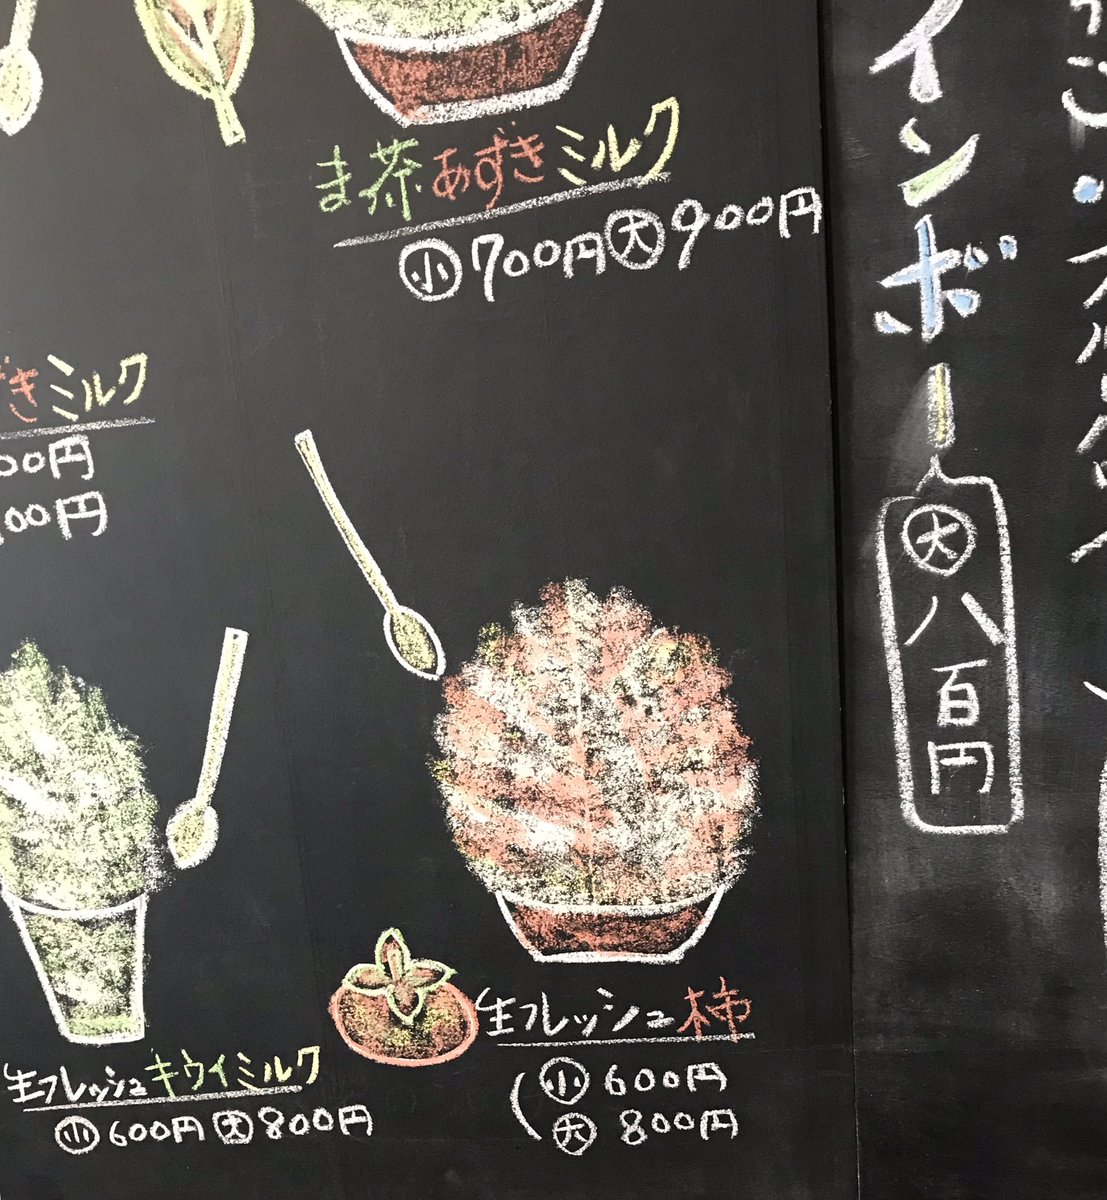 ま茶あずきミルク
小700円大900円
ずきミルク
00円
00円
生フレッシュキウイミルク
小600円大800円
生フレッシュ柿
小 600円
大 800円
インボー
大八百円